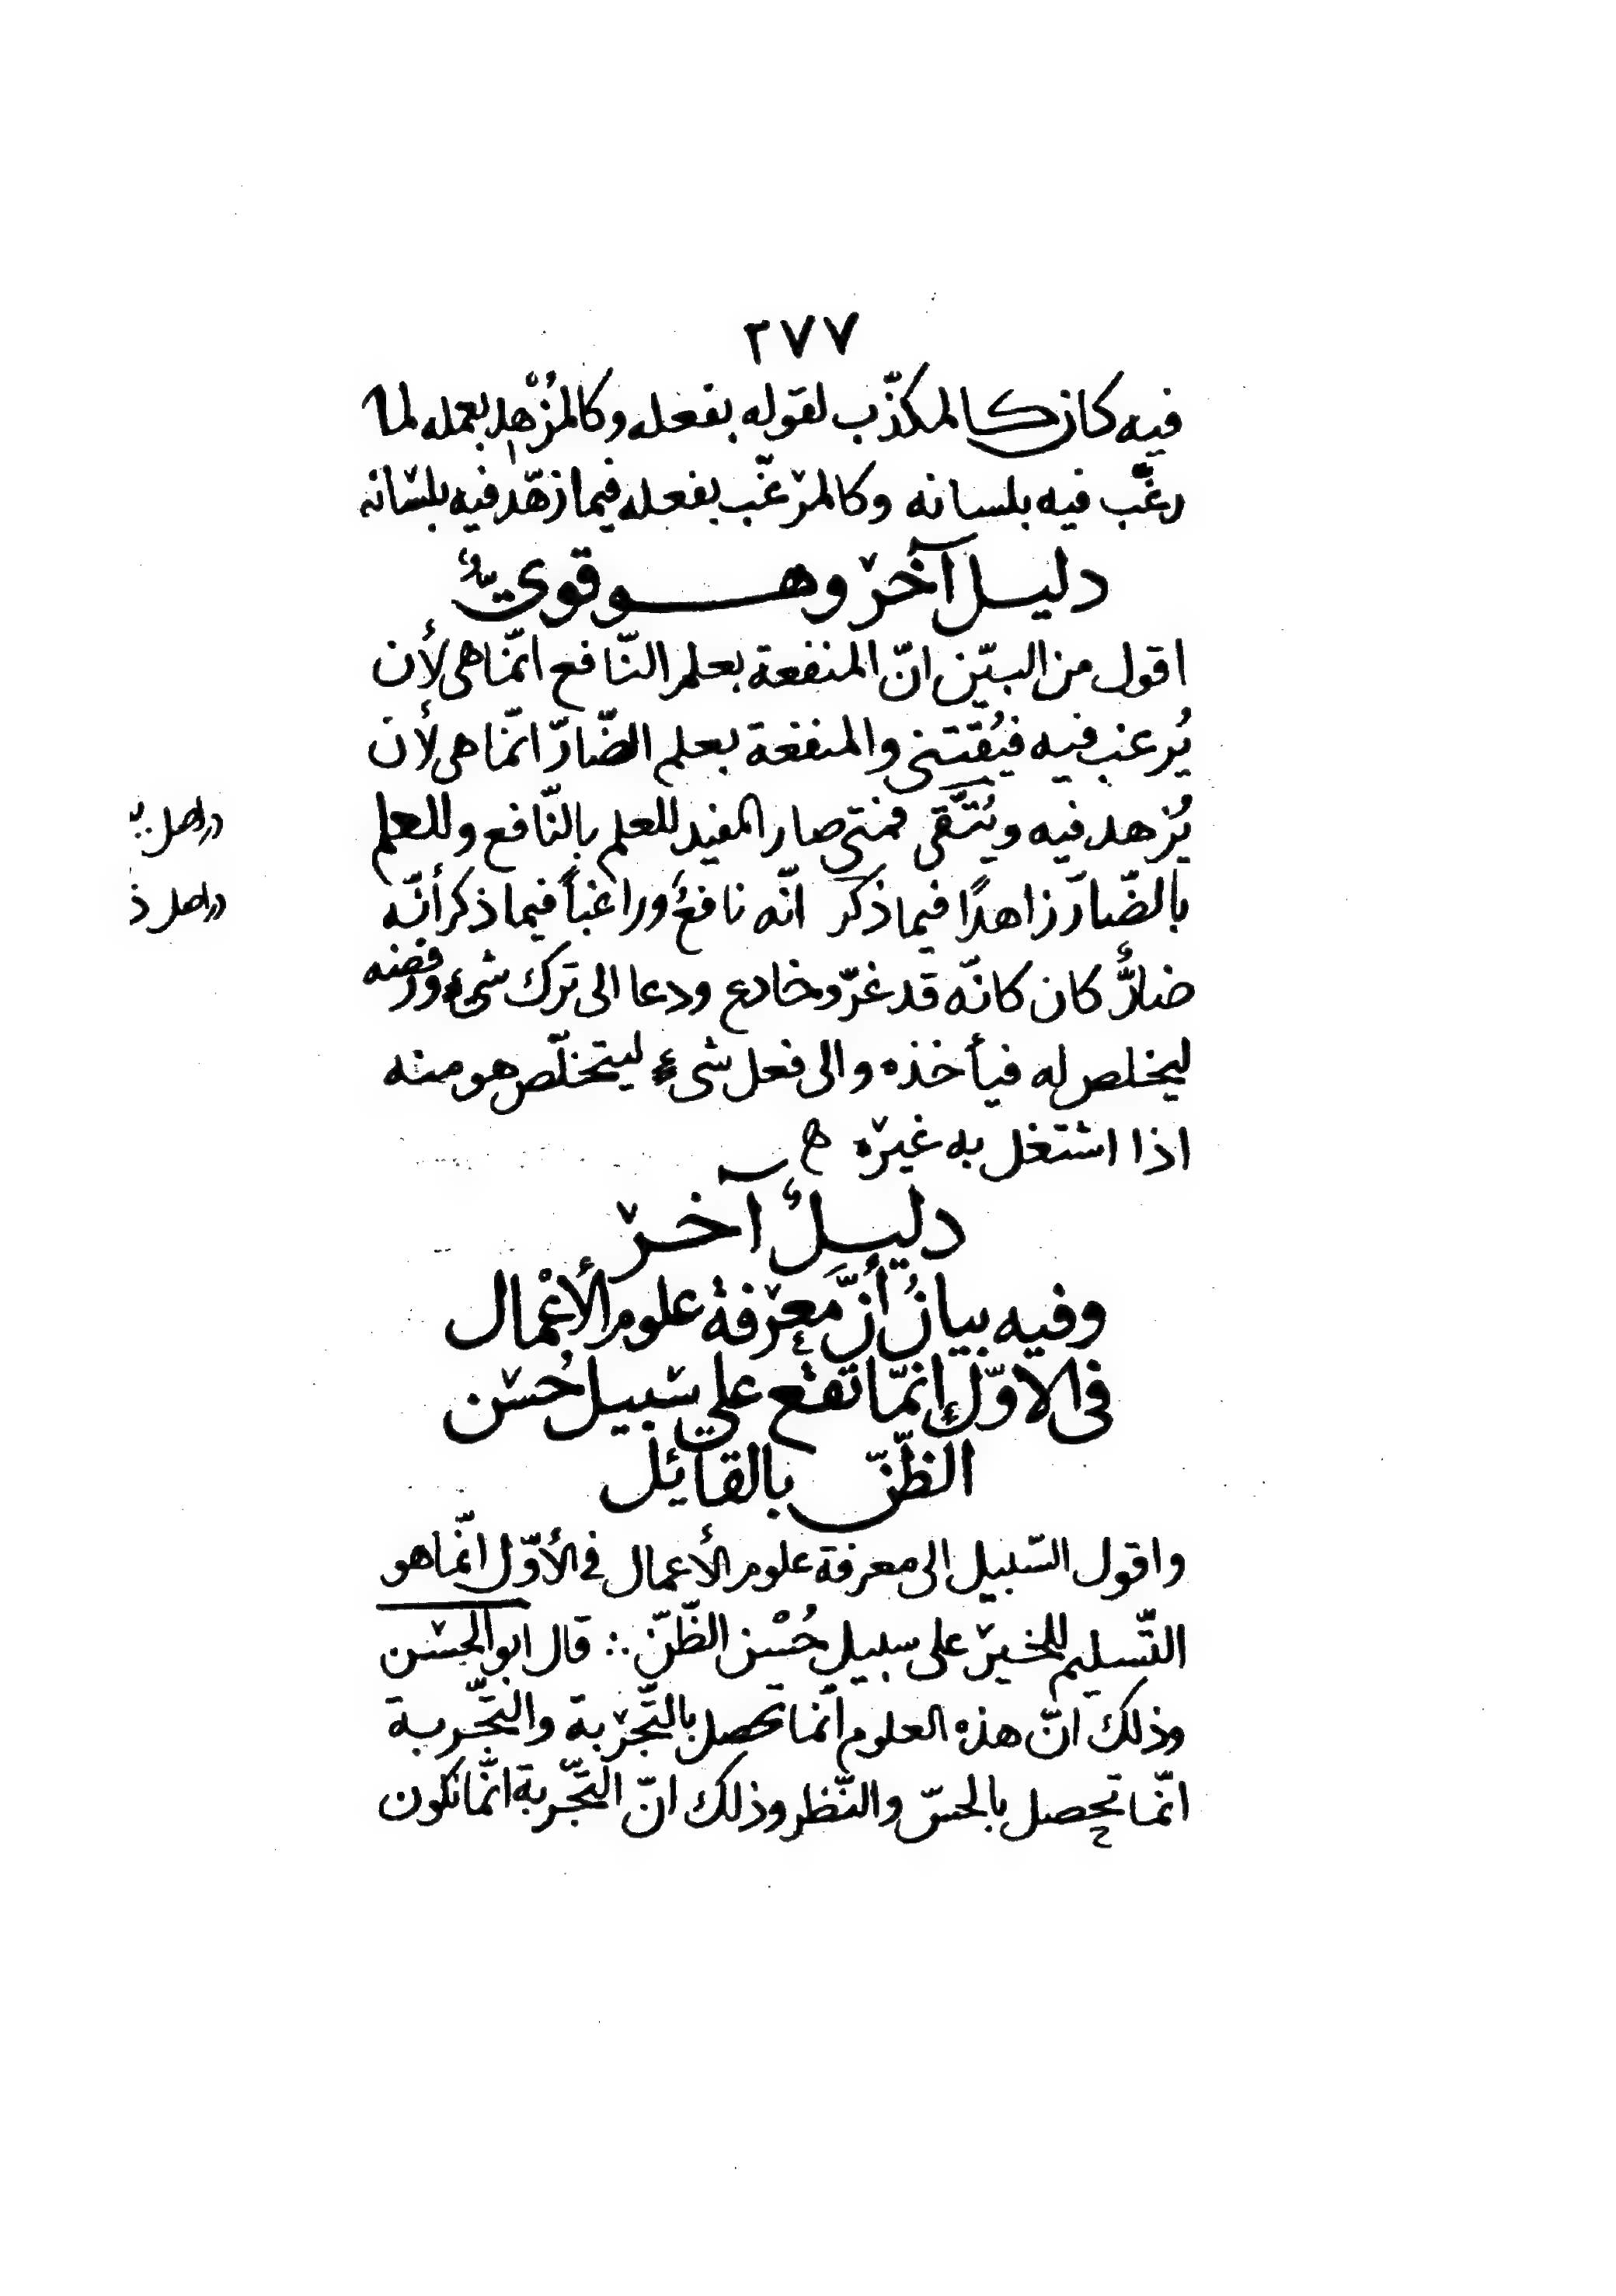 ٢٧٧
فيه كان كالمكذّب لقوله بفعله وكالمُزْهِد بعمله لما
رغّب فيه بلسانه وكالمرغّب بفعله فيما زهّد فيه بلسانه
دليل آخر وهو قويّ
اقول من البيّن انّ المنفعة بعلم النّافع انّما هى لأن
يُرغب فيه فيُقتنى والمنفعة بعلم الضّارّ انّما هى لأن
يُزهد فيه ويُتّقى فمتى صار المفيد للعلم بالنّافع وللعلم
بالضّارّ زاهدًا فيما ذكر انّه نافعٌ وراغباً فيما ذكر أنّه
ضارٌّ كان كانّه قد غرّ وخادع ودعا الى ترك شىء ورفضه
ليخلص له فيأخذه والى فعل شىء ليتخلّص هو منه
اذا اشتغل به غيره ه
دليلٌ آخر
وفيه بيانُ أنّ معرفة علوم الأعْمال
فى الاوّل إنّما تقع على سبيل حُسن
الظّنّ بالقائل
واقول السّبيل الى معرفة علوم الأعمال فى الأوّل انّما هو
التّسليم للخير على سبيل حُسْن الظّنّ ∴ قال ابو الحسن
وذلك انّ هذه العلوم انّما تحصل بالتّجربة والتّجربة
انّما تحصل بالحسّ والنّظر وذلك انّ التّجربة انّما تكون